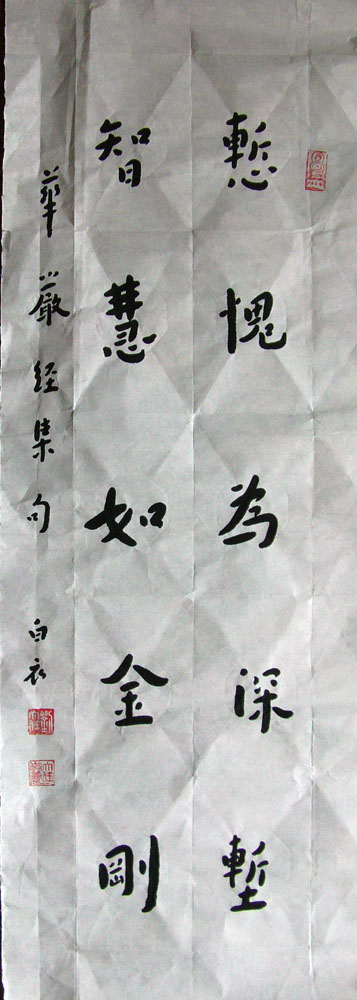 慙愧為深塹
智慧如金剛
華嚴経集句 白衣